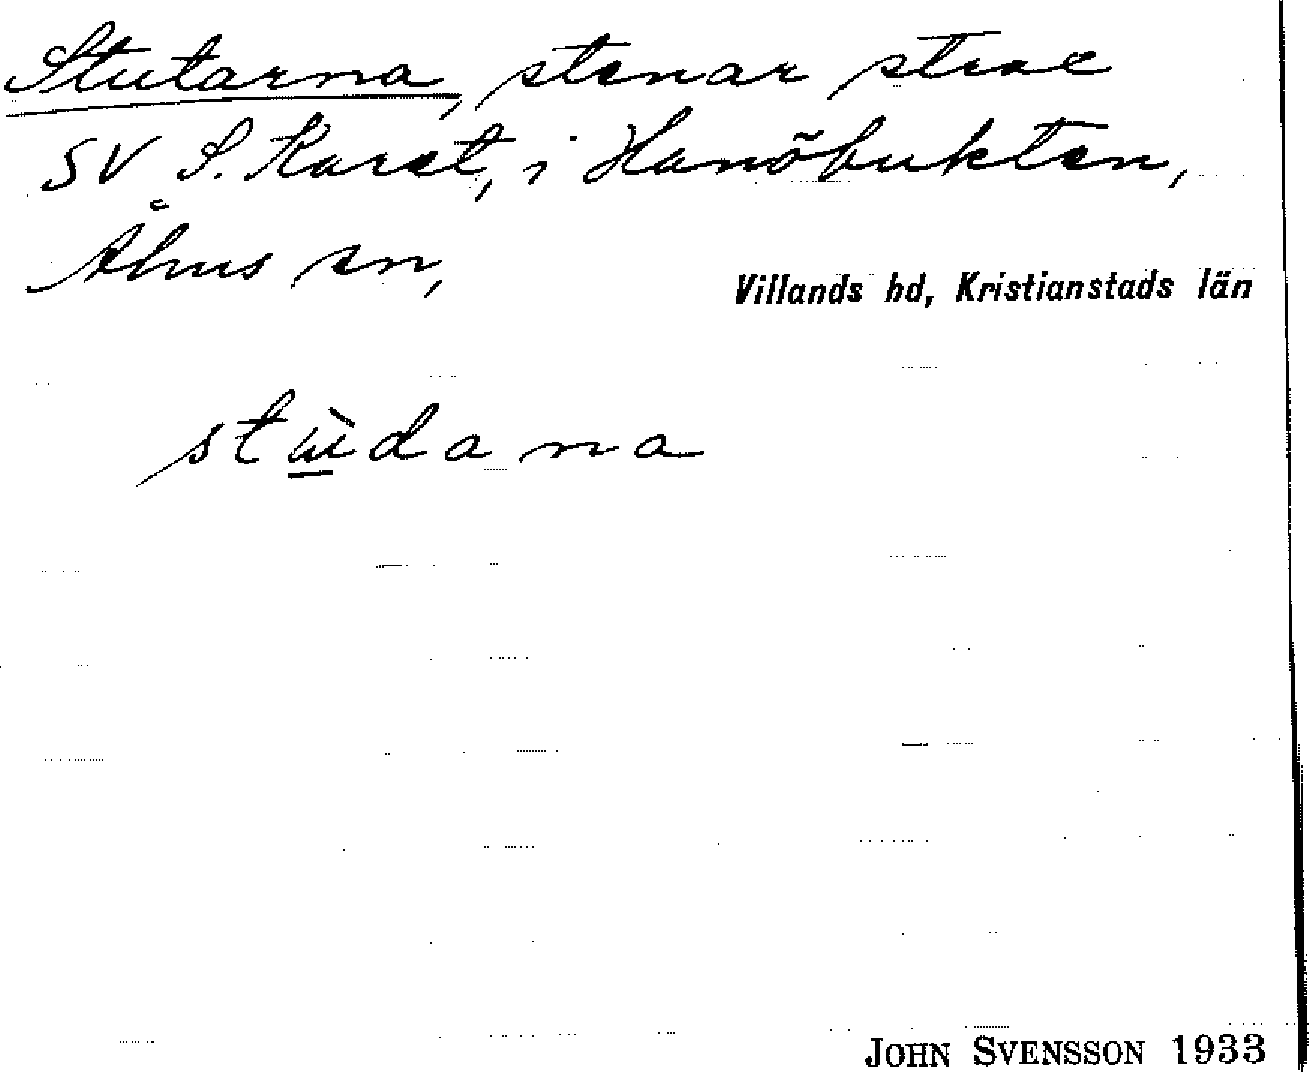 Stutarna, stenar strax
SV S. Karet, i Hanöbukten,
Åhus sn,
Villands hd, Kristianstads län
stùdana
JOHN SVENSSON 1933